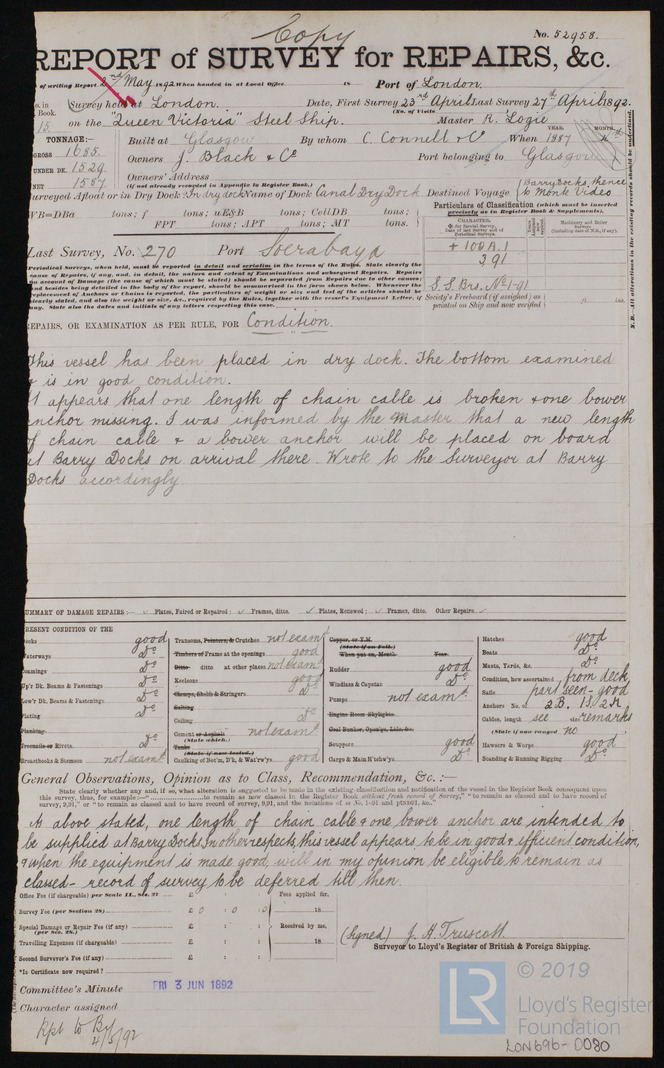 Copy
No. 52958.
REPORT of SURVEY for REPAIRS, &c.
of writing Report 2nd May 1892 When handed in at Local Office 18 Port of London.
No. in Survey held at London. Date, First Survey 23rd April Last Survey 27th April 1892.
Book. (No. of Visits
15 on the "Queen Victoria" Steel Ship. Master R. Logie
TONNAGE:— Built at Glasgow By whom C. Connell & Co When 1887 YEAR. MONTH. 4th
GROSS 1685. Owners J. Black & Co Port belonging to Glasgow
UNDER DK. 1529 Owners' Address
NET 1587 (if not already recorded in Appendix to Register Book.)
Surveyed Afloat or in Dry Dock In dry dock Name of Dock Canal Dry Dock Destined Voyage Barry Docks, thence to Monte Video
WB=DBa tons; f tons; uE&B tons; CellDB tons;
FPT tons; APT tons; MT tons.
Particulars of Classification (which must be inserted precisely as in Register Book & Supplements).
CHARACTER.
+ 100 A.1
3 91
S.S. Brs. No 1-91
Society's Freeboard (if assigned) as printed on Ship and now verified ft. ins.
N.B.—All alterations in the existing records should be underlined.
Last Survey, No. 270 Port Soerabaya
Periodical Surveys, when held, must be reported in detail and seriatim in the terms of the Rules. State clearly the
cause of Repairs, if any, and, in detail, the nature and extent of Examinations and subsequent Repairs. Repairs
on account of Damage (the cause of which must be stated) should be separated from Repairs due to other causes;
and besides being detailed in the body of the report, should be summarised in the form shown below. Whenever the
replacement of Anchors or Chains is reported, the particulars of weight or size and test of the articles should be
clearly stated, and also the weight or size, &c., required by the Rules, together with the vessel's Equipment Letter, if
any. State also the dates and initials of any letters respecting this case.
REPAIRS, OR EXAMINATION AS PER RULE, FOR Condition.
This vessel has been placed in dry dock. The bottom examined
& is in good condition.
It appears that one length of chain cable is broken & one bower
anchor missing. I was informed by the Master that a new length
of chain cable & a bower anchor will be placed on board
at Barry Docks on arrival there. Wrote to the Surveyor at Barry
Docks accordingly.
SUMMARY OF DAMAGE REPAIRS:— Plates, Faired or Repaired; Frames, ditto. Plates, Renewed; Frames, ditto. Other Repairs.
PRESENT CONDITION OF THE
Decks good
Waterways Do
Coamings Do
Up'r Dk. Beams & Fastenings Do
Low'r Dk. Beams & Fastenings Do
Plating Do
Planking
Treenails or Rivets. Do
Breasthooks & Stemson not examd
Transoms, Pointers, & Crutches not examd
Timbers of Frame at the openings good
Ditto ditto at other places not examd
Keelsons good
Clamps, Shelfs & Stringers Do
Salting
Ceiling Do
Cement or Asphalt (State which.) not examd
Tanks (State if now tested.)
Caulking of Bot'm, D'k, & Wat'rw'ys good
Copper, or Y.M. (State if on Felt.)
When put on, Month Year
Rudder good
Windlass & Capstan Do
Pumps not examd
Engine Room Skylights.
Coal Bunker, Openings, Lids, &c.
Scuppers good
Cargo & Main H'tchw'ys Do
Hatches good
Boats Do
Masts, Yards, &c. Do
Condition, how ascertained from deck
Sails part seen - good
Anchors No. of 2B. 1S. 2K
Cables, length see size remarks
(State if now ranged no
Hawsers & Warps good
Standing & Running Rigging Do
General Observations, Opinion as to Class, Recommendation, &c.:—
State clearly whether any, and if so, what alteration is suggested to be made in the existing classification and notification of the vessel in the Register Book consequent upon
this survey, thus, for example:—" to remain as now classed in the Register Book without fresh record of Survey," "to remain as classed and to have record of
survey, 9,91," or "to remain as classed and to have record of survey, 9,91, and the notations of ss No. 1-91 and
As above stated, one length of chain cable & one bower anchor are intended to
be supplied at Barry Docks. In other respects, this vessel appears to be in good & efficient condition,
& when the equipment is made good, will in my opinion be eligible to remain as
classed - record of survey to be deferred till then.
Office Fee (if chargeable) per Scale II., Sec. 27 £ : : Fees applied for,
Survey Fee (per Section 28) £ 0 : 0 : 0 18
Special Damage or Repair Fee (if any) (per Sec. 28.) £ : : Received by me,
Travelling Expenses (if chargeable) £ : : 18
Second Surveyor's Fee (if any) £ : :
(Signed) J. H. Truscott
Surveyor to Lloyd's Register of British & Foreign Shipping.
*Is Certificate now required?
Committee's Minute FRI 3 JUN 1892
Character assigned
Rpt to By
4/5/92
LR
© 2019
Lloyd's Register
Foundation
LON696-0080